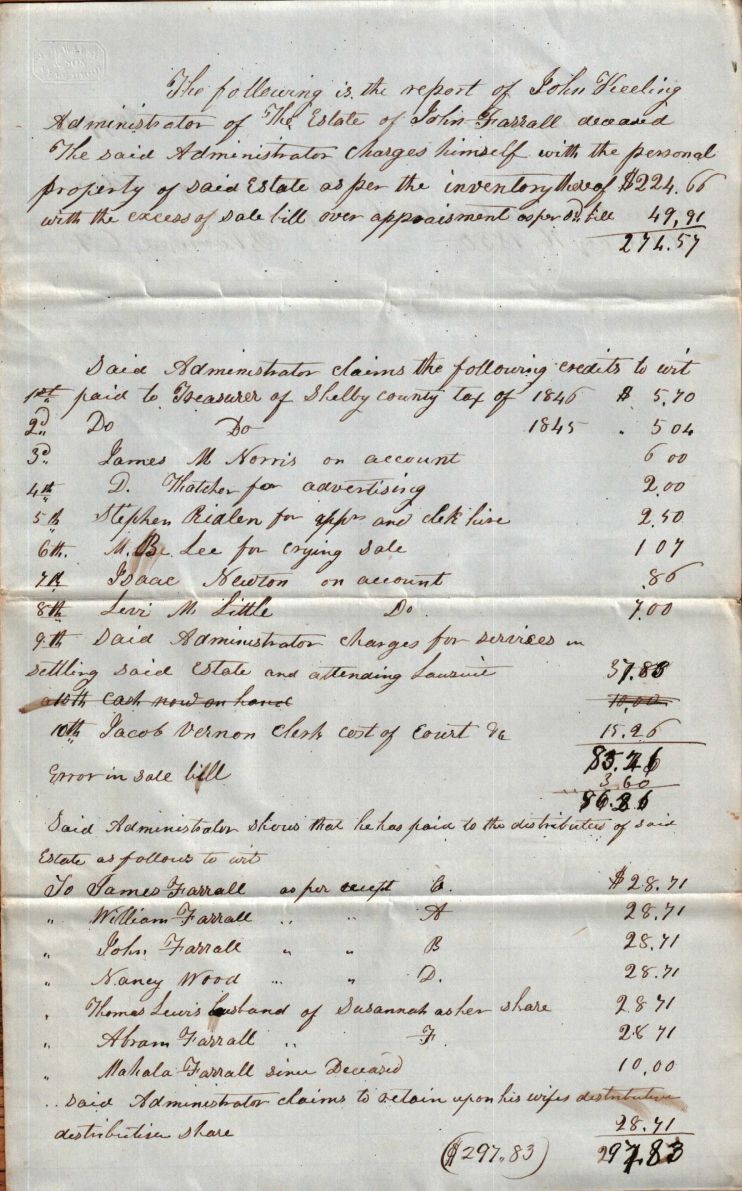 & SON
The following is the report of John Keeling
Administrator of The Estate of John Farrall deceased
The said Administrator Charges himself with the personal
property of said Estate as per the inventory thereof $224.66
with the excess of sale bill over appraisment as per Sd bill 49,91
274.57
Said Administrator claims the following credits to wit
1st paid to Treasurer of Shelby County tax of 1846 $ 5,70
2d Do Do 1845 " 5 04
3d James M Norris on account 6 00
4th D. Thatcher for advertising 2.00
5th Stephen Ridlen for appr and clek hire 2.50
6th. M. B. Lee for crying sale 1 07
7th Isaac Newton on account .86
8th Levi M Little Do 7.00
9th Said Administrator charges for services in
settling said Estate and attending Lawsuit 37.83
10th Cash now on hand 10,00
10th Jacob Vernon Clerk cost of Court &c 15.26
83.26
Error in sale bill 3 60
86.86
Said Administrator shows that he has paid to the distributees of said
Estate as follows to wit
To James Farrall as per receipt C. $28.71
" William Farrall " " A 28,71
" John Farrall " " B 28.71
" Nancy Wood " " D. 28.71
" Thomas Lewis husband of Susannah as her share 28 71
" Abram Farrall " F. 28 71
" Mahala Farrall since Deceased 10,00
" Said Administrator claims to retain upon his wifes distributive
distributive share 28.71
($297.83) 297.83